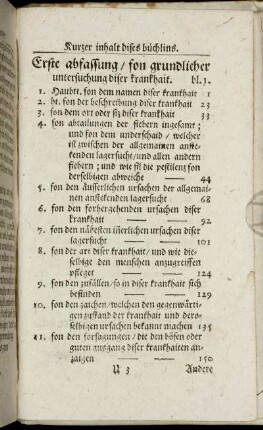 Kurzer inhalt dises büchlins.
Erste abfassung / fon grundlicher
untersuchung diser krankhait. bl. 1.
1. Haubtt. fon dem namen diser krankhait 1
2. ht. fon der beschreibung diser krankhait 23
3. fon dem ort oder siz diser krankhait 33
4. fon abtailungen der fiebern ingesamt;
und fon dem underschaid / welcher
ist zwischen der allgemainen anste-
kenden lagersucht / und allen andern
fiebern; und wie fil die pestilenz fon
derselbigen abweicht — 44
5. fon den äusserlichen ursachen der allgemai-
nen anstekenden lagersucht 68
6. fon den forhergehenden ursachen diser
krankhait — — 92
7. fon den nähesten innerlichen ursachen diser
lagersucht — — 101
8. fon der art diser krankhait / und wie die-
selbige den menschen anzugreiffen
pfleget — — 124
9. fon den zufällen / so in diser krankhait sich
befinden — — 129
10. fon den zaichen / welchen den gegenwärti-
gen zustand der krankhait und dero-
selbigen ursachen bekannt machen 135
11. fon den forsagungen / die den bösen oder
guten ausgang diser krankhaiten an-
zaigen — — 150
U 3 Andere